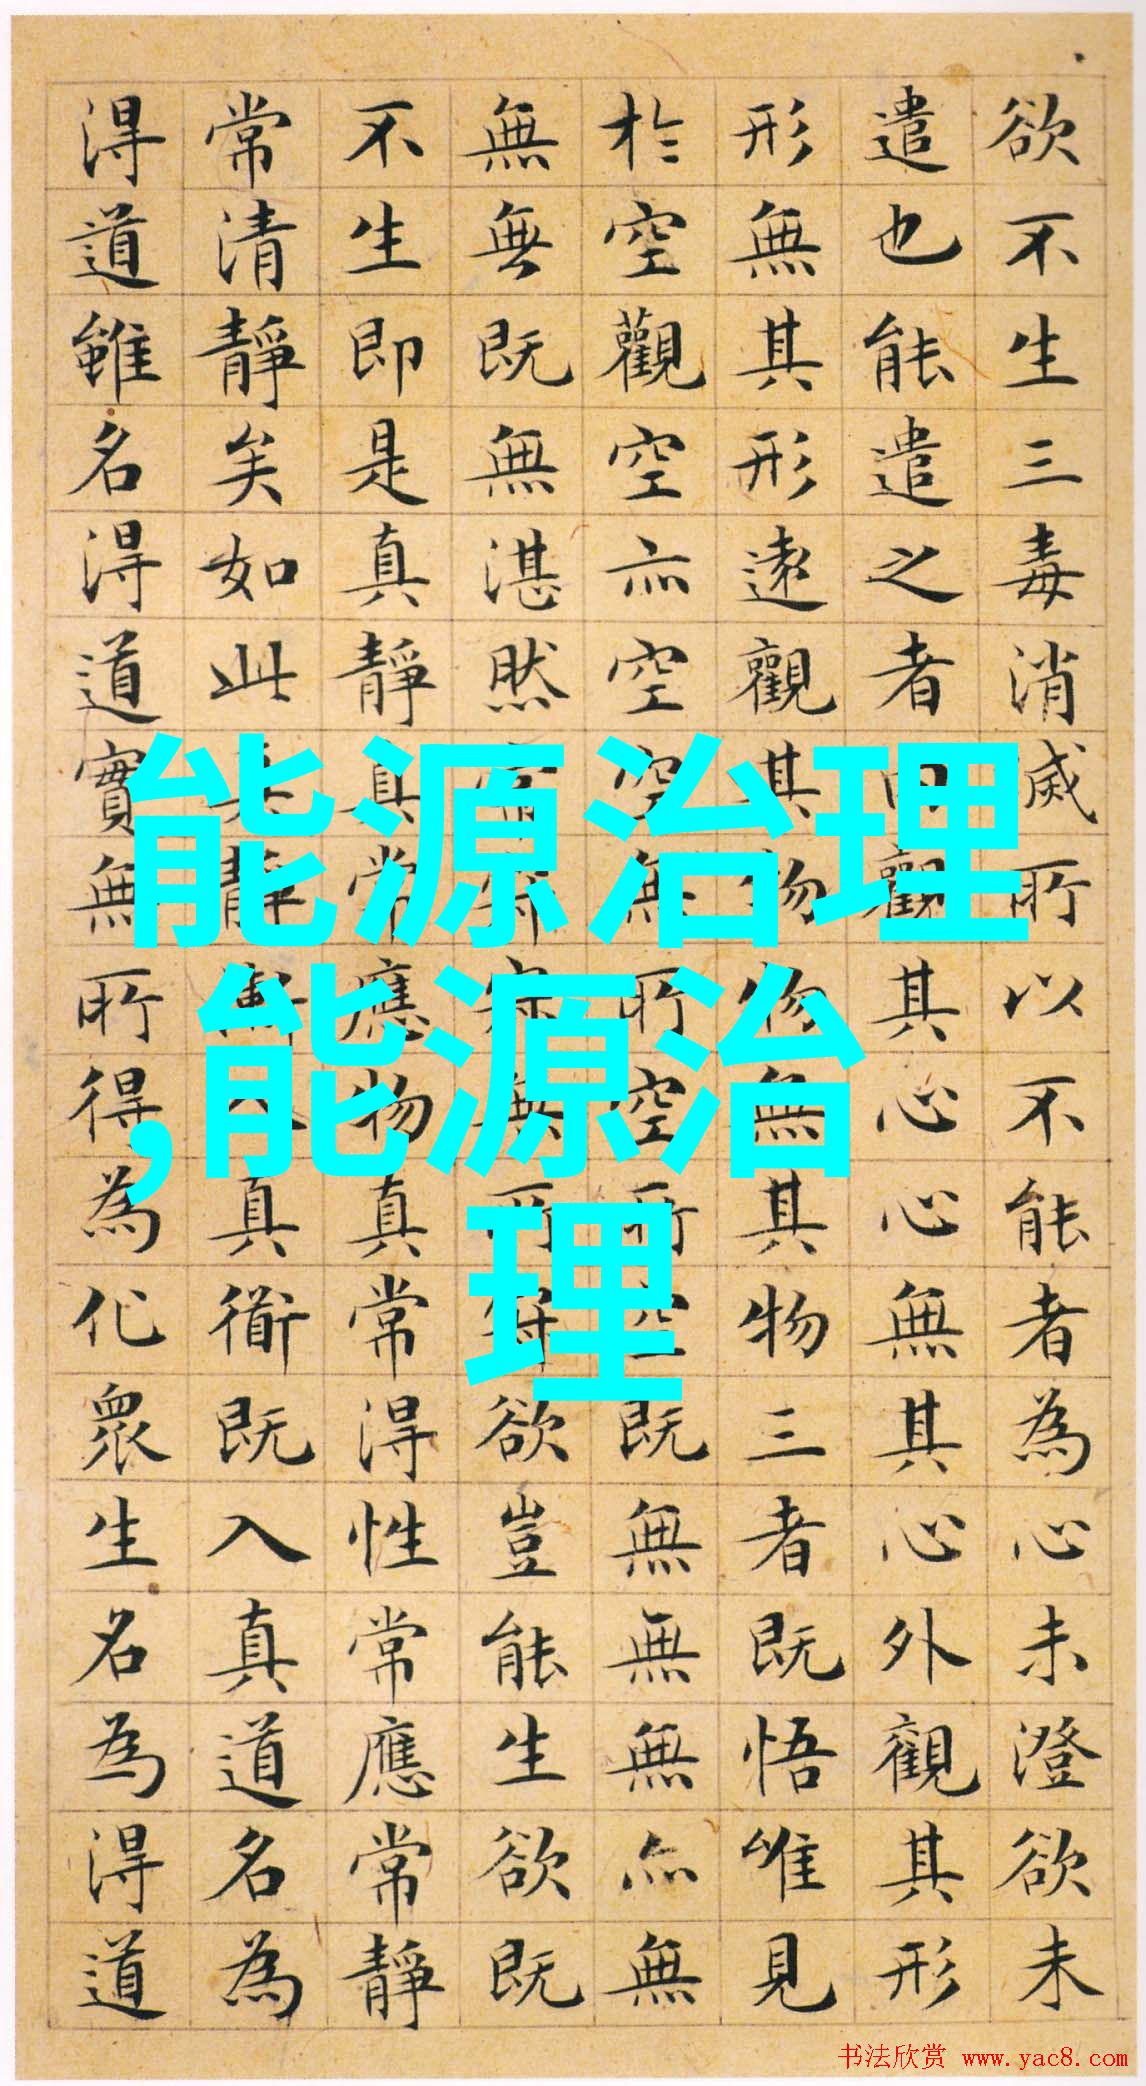 欲不生三毒消滅所以不能者為心未澄欲未
遣也能遣之者內觀其心心無其心外觀其形
形無其形遠觀其物物無其物三者既悟唯見
於空觀空亦空空無所空所空既無無無亦無
無無既無湛然常寂寂無所寂欲豈能生欲既
不生即是真靜真常應物真常得性常應常靜
常清靜矣如此真靜漸入真衜既入真道名為
得道雖名得道實無所得為化眾生名為得道
能源治理
,能源治
理
书法欣赏 www.yac8.com